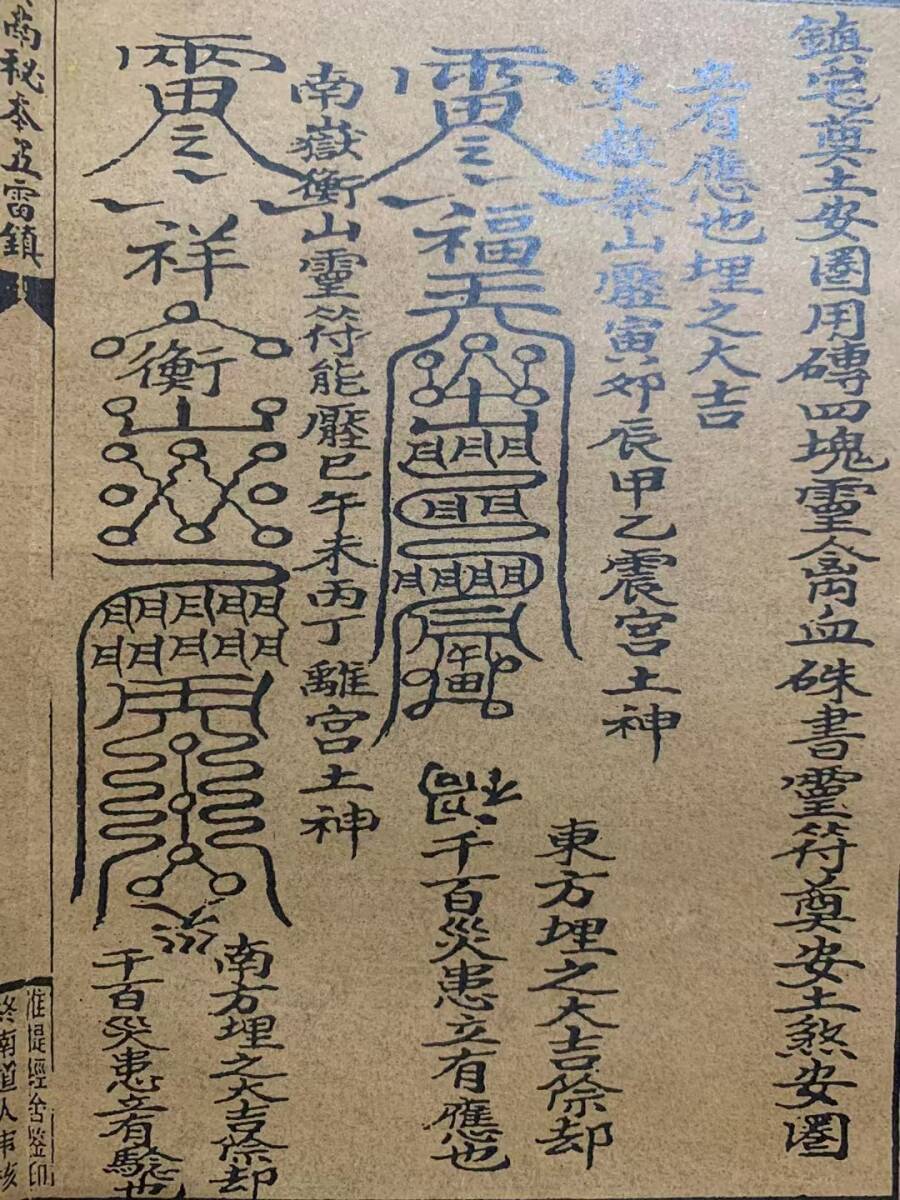 鎮宅奠土安圂用磚四塊靈禽血硃書靈符奠安土煞安圂
者應也埋之大吉
東嶽泰山靈寅卯辰甲乙震宮土神
東方埋之大吉除却
千百災患立有應也
福
南嶽衡山靈符能壓巳午未丙丁離宮土神
南方埋之大吉除却
千百災患立有驗也
祥
衡
南秘本五雷鎮
准提經舍鉴印
終南道人